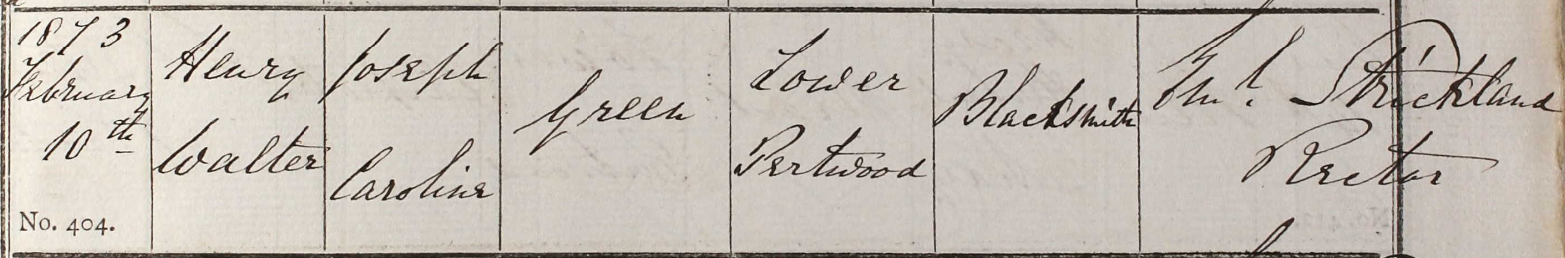 1873
February
10th
No. 404.
Henry
Walter
Joseph
Caroline
Green
Lower
Pertwood
Blacksmith
Strickland
Rector